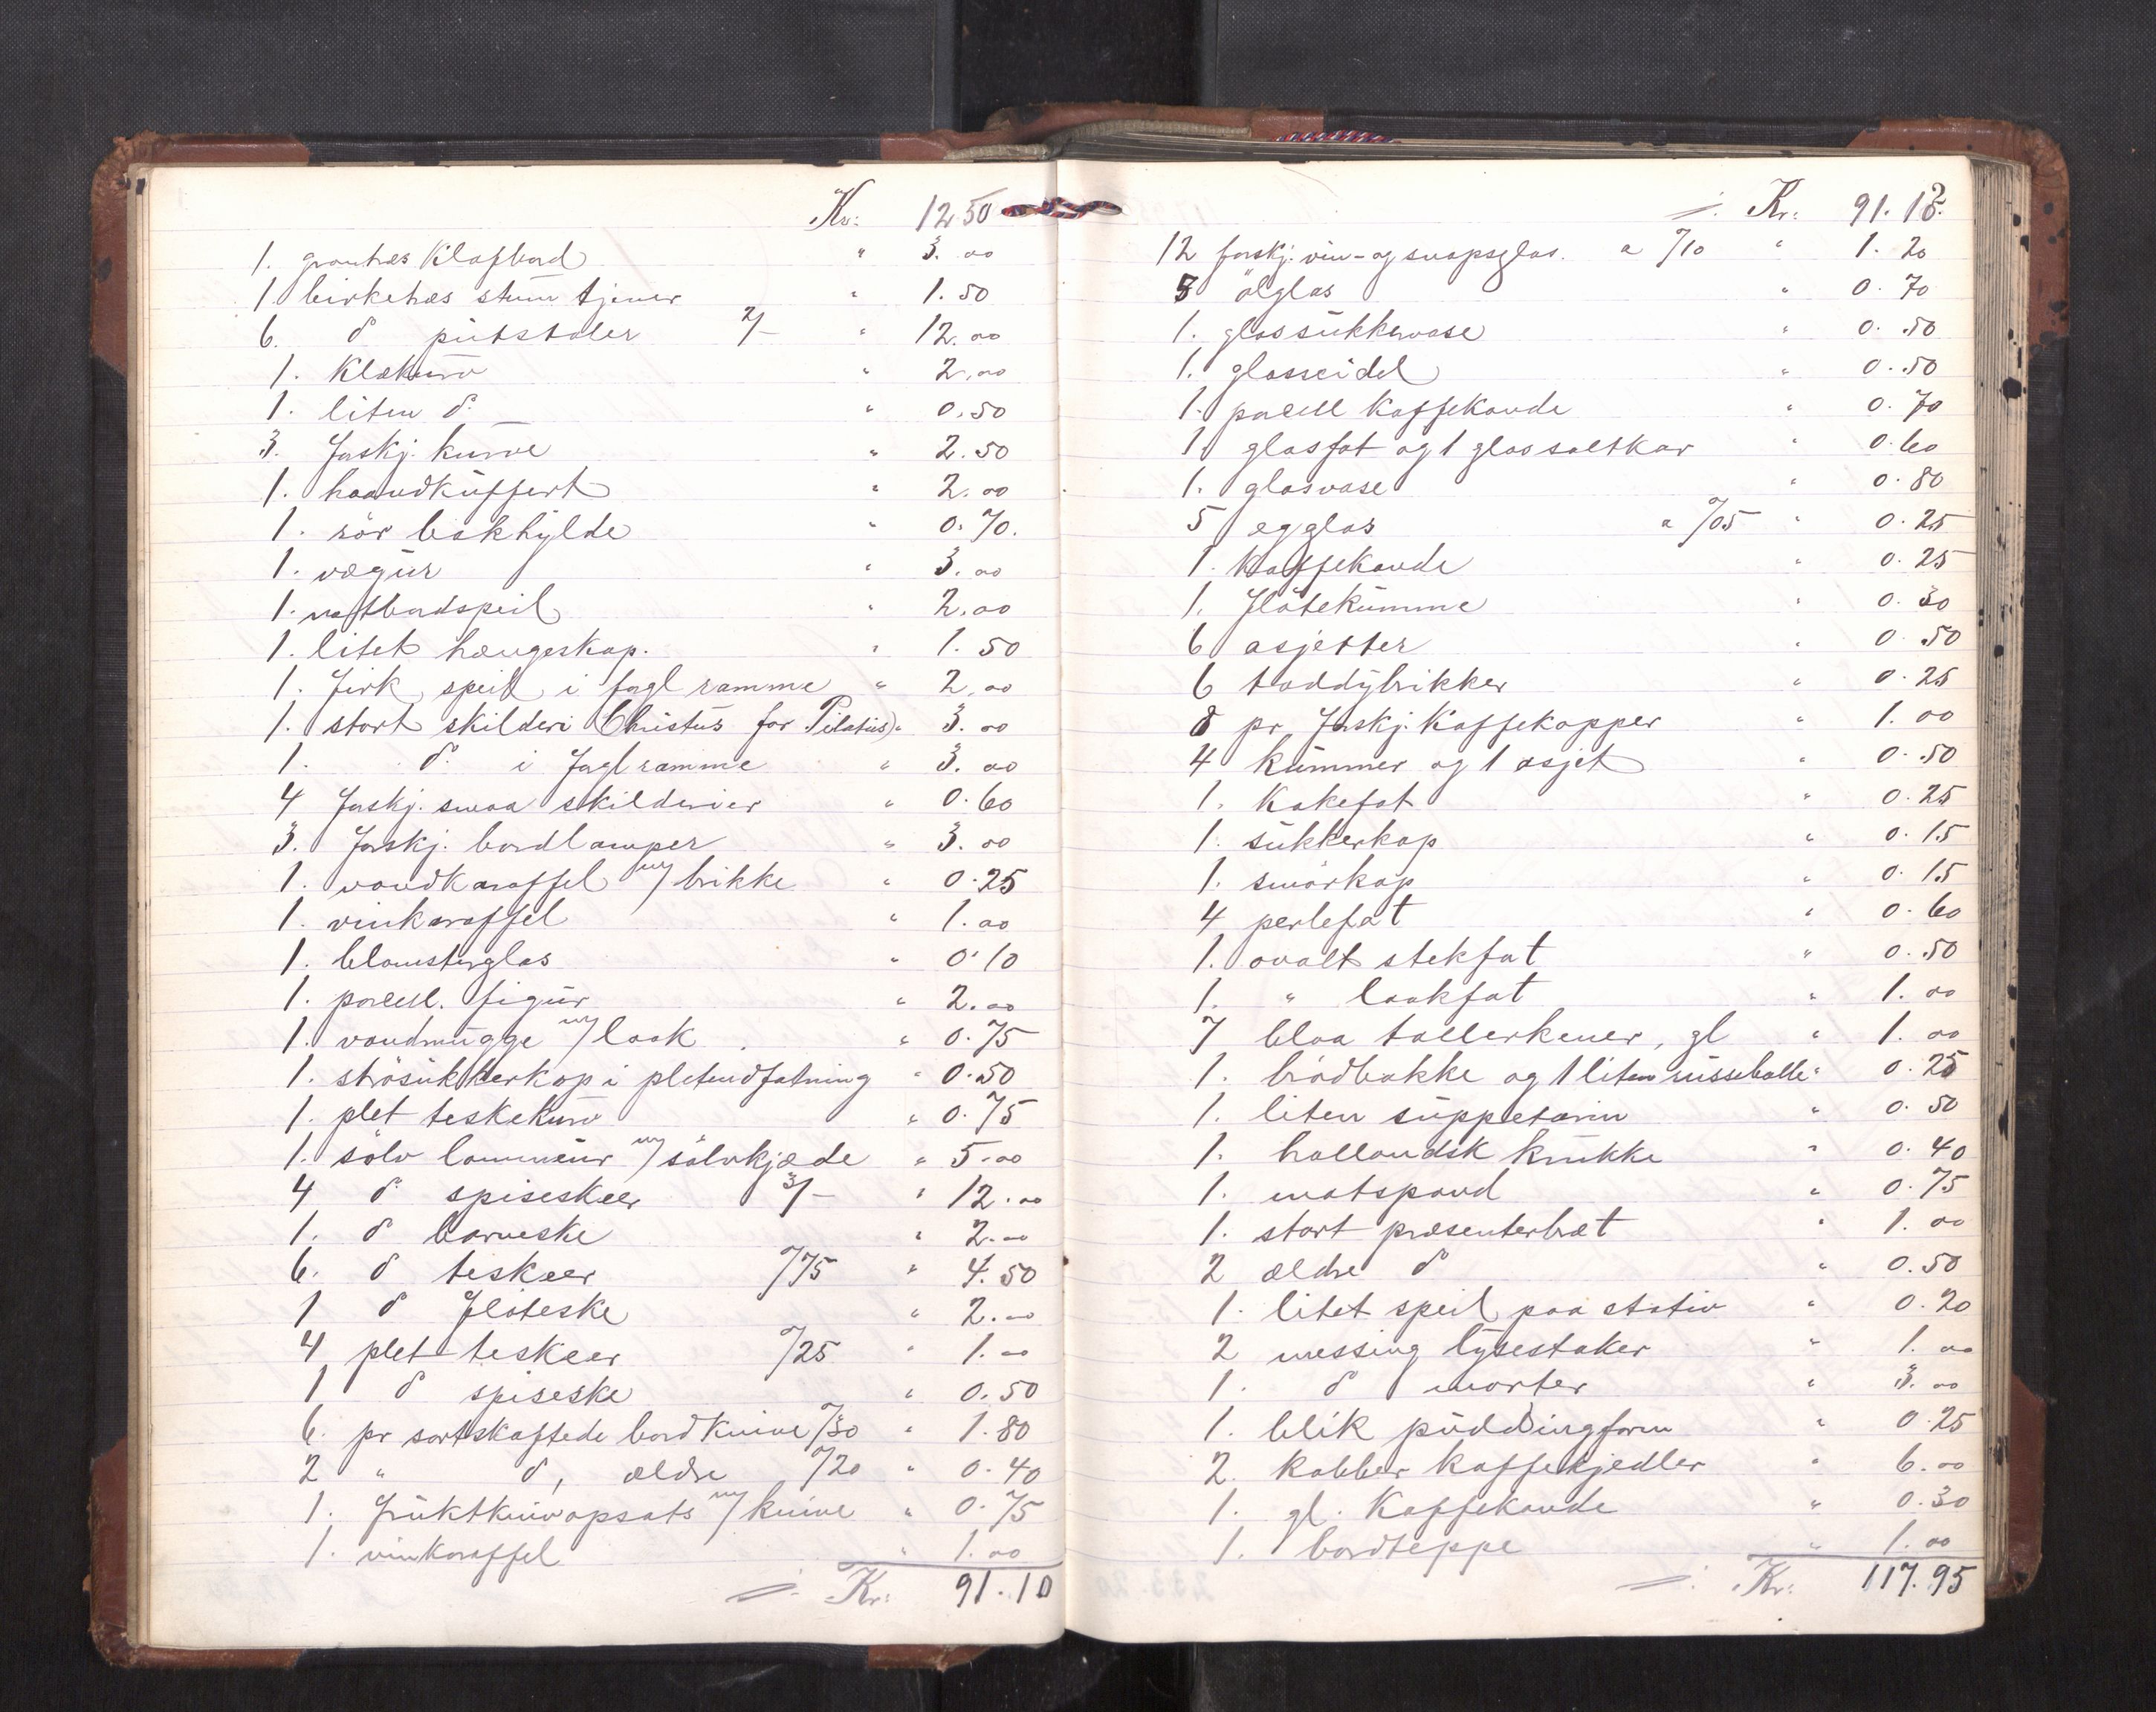 Kr: 12 50
1. grantræs Klafbord " 3. 00
1 birketræs stum tjener " 1. 50
6. do pinstoler 2/- " 12. 00
1. Klækurv " 2. 00
1. liten do " 0. 50
3. forskj. kurve " 2. 50
1. haandkuffert " 2. 00
1. rör bokhylde " 0. 70.
1. vægur " 3. 00
1. natbordspeil " 2. 00
1. litet hængeskap. " 1. 50
1. firk. speil i fugl ramme " 2. 00
1. stort skilderi (Christus for Pilatus) " 3. 00
1. do i fugl ramme " 3. 00
4 forskj. smaa skilderier " 0. 60
3. forskj. bordlamper " 3. 00
1. vandkaraffel m/ brikke " 0. 25
1. vinkaraffel " 1. 00
1. blomsterglas " 0. 10
1. porcell. figur " 2. 00
1. vandmugge m/ laak " 0. 75
1. strösukkerkop i pletindfatning " 0. 50
1. plet teskekurv " 0. 75
1. sölv lommeur m/ sölvkjæde " 5. 00
4 do spiseskeer 3/- " 12. 00
1. do barneske " 2. 00
6. do teskeer 0/75 " 4. 50
1 do Flöteske " 2. 00
4 plet teskeer 0/25 " 1. 00
1 do spiseske " 0. 50
6. pr sortskaftede bordknive 0/30 " 1. 80
2 " do, ældre 0/20 " 0. 40
1. fruktknivopsats m/ knive " 0. 75
1. vinkaraffel " 1. 00
Kr: 91. 10
Kr: 91. 10
12 forskj. vin- og snapsglas. a 0/10 " 1. 20
8 ölglas " 0. 70
1. glassukkervase " 0. 50
1. glasseidel " 0. 50
1. porcell Kaffekande " 0. 70
1 glasfat og 1 glassaltkar " 0. 60
1. glasvase " 0. 80
5 egglas a 0/05 " 0. 25
1. Kaffekande " 0. 25
1. Flötekumme " 0. 30
6 asjetter " 0. 50
6 toddybrikker " 0. 25
8 pr forskj. Kaffekopper " 1. 00
4 kummer og 1 asjet " 0. 50
1. Kakefat " 0. 25
1. sukkerkop " 0. 15
1. smörkop " 0. 15
4 perlefat " 0. 60
1. ovalt stekfat " 0. 50
1. " laakfat " 1. 00
7 blaa tallerkener, gl " 1. 00
1. brödbakke og 1 liten russebolle " 0. 25
1. liten suppeterin " 0. 50
1. hollandsk krukke " 0. 40
1. matspand " 0. 75
1. stort presenterbræt " 1. 00
2 ældre do " 0. 50
1. litet speil paa stativ " 0. 20
2 messing lysestaker " 1. 00
1. do morter " 3. 00
1. blik puddingform " 0. 25
2. kobber kaffekjedler " 6. 00
1. gl. Kaffekande " 0. 30
1. bordteppe " 1. 00
Kr: 117. 95